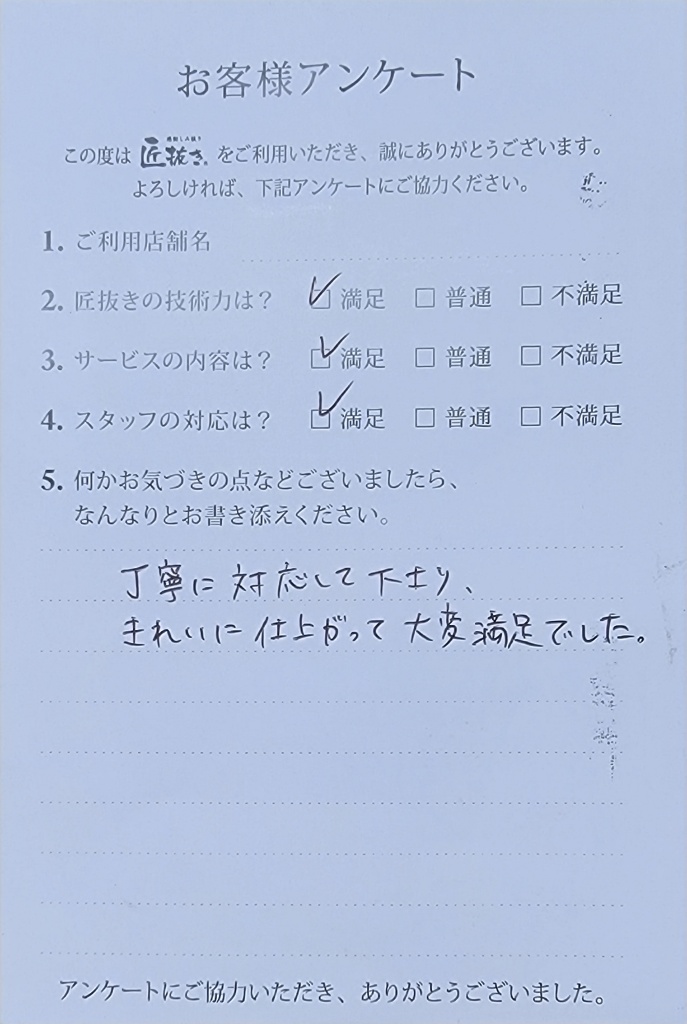 お客様アンケート
この度は 匠抜き をご利用いただき、誠にありがとうございます。
よろしければ、下記アンケートにご協力ください。
1. ご利用店舗名
2. 匠抜きの技術力は? ☑ 満足 □ 普通 □ 不満足
3. サービスの内容は? ☑ 満足 □ 普通 □ 不満足
4. スタッフの対応は? ☑ 満足 □ 普通 □ 不満足
5. 何かお気づきの点などございましたら、
なんなりとお書き添えください。
丁寧に対応して下さり、
きれいに仕上がって大変満足でした。
アンケートにご協力いただき、ありがとうございました。